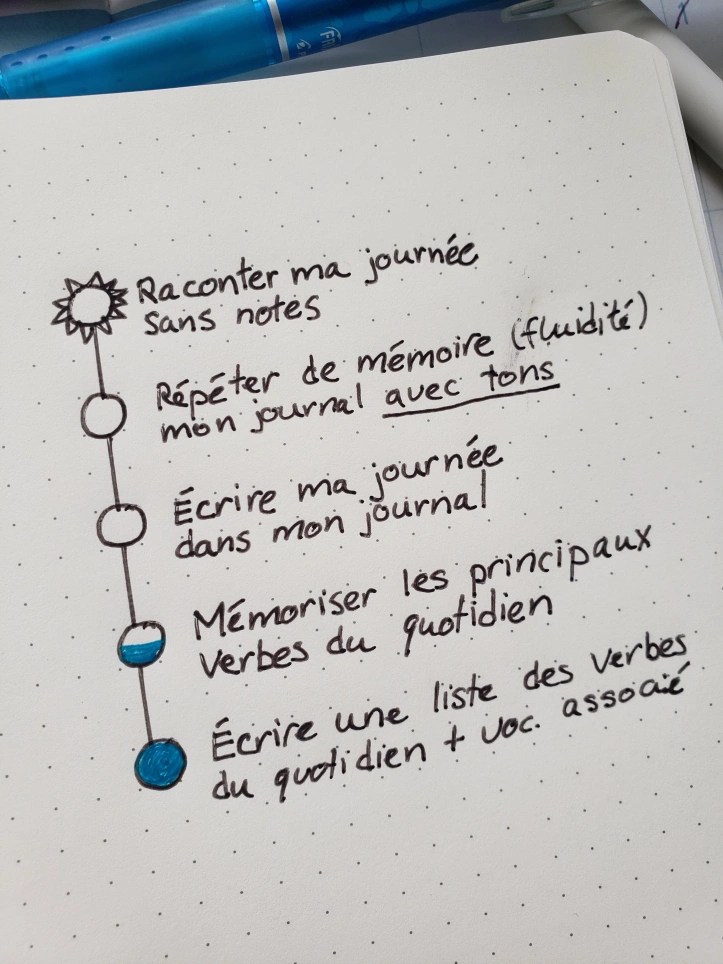 Raconter ma journée
sans notes
Répéter de mémoire (fluidité)
mon journal avec tons
Écrire ma journée
dans mon journal
Mémoriser les principaux
verbes du quotidien
Écrire une liste des verbes
du quotidien + voc. associé